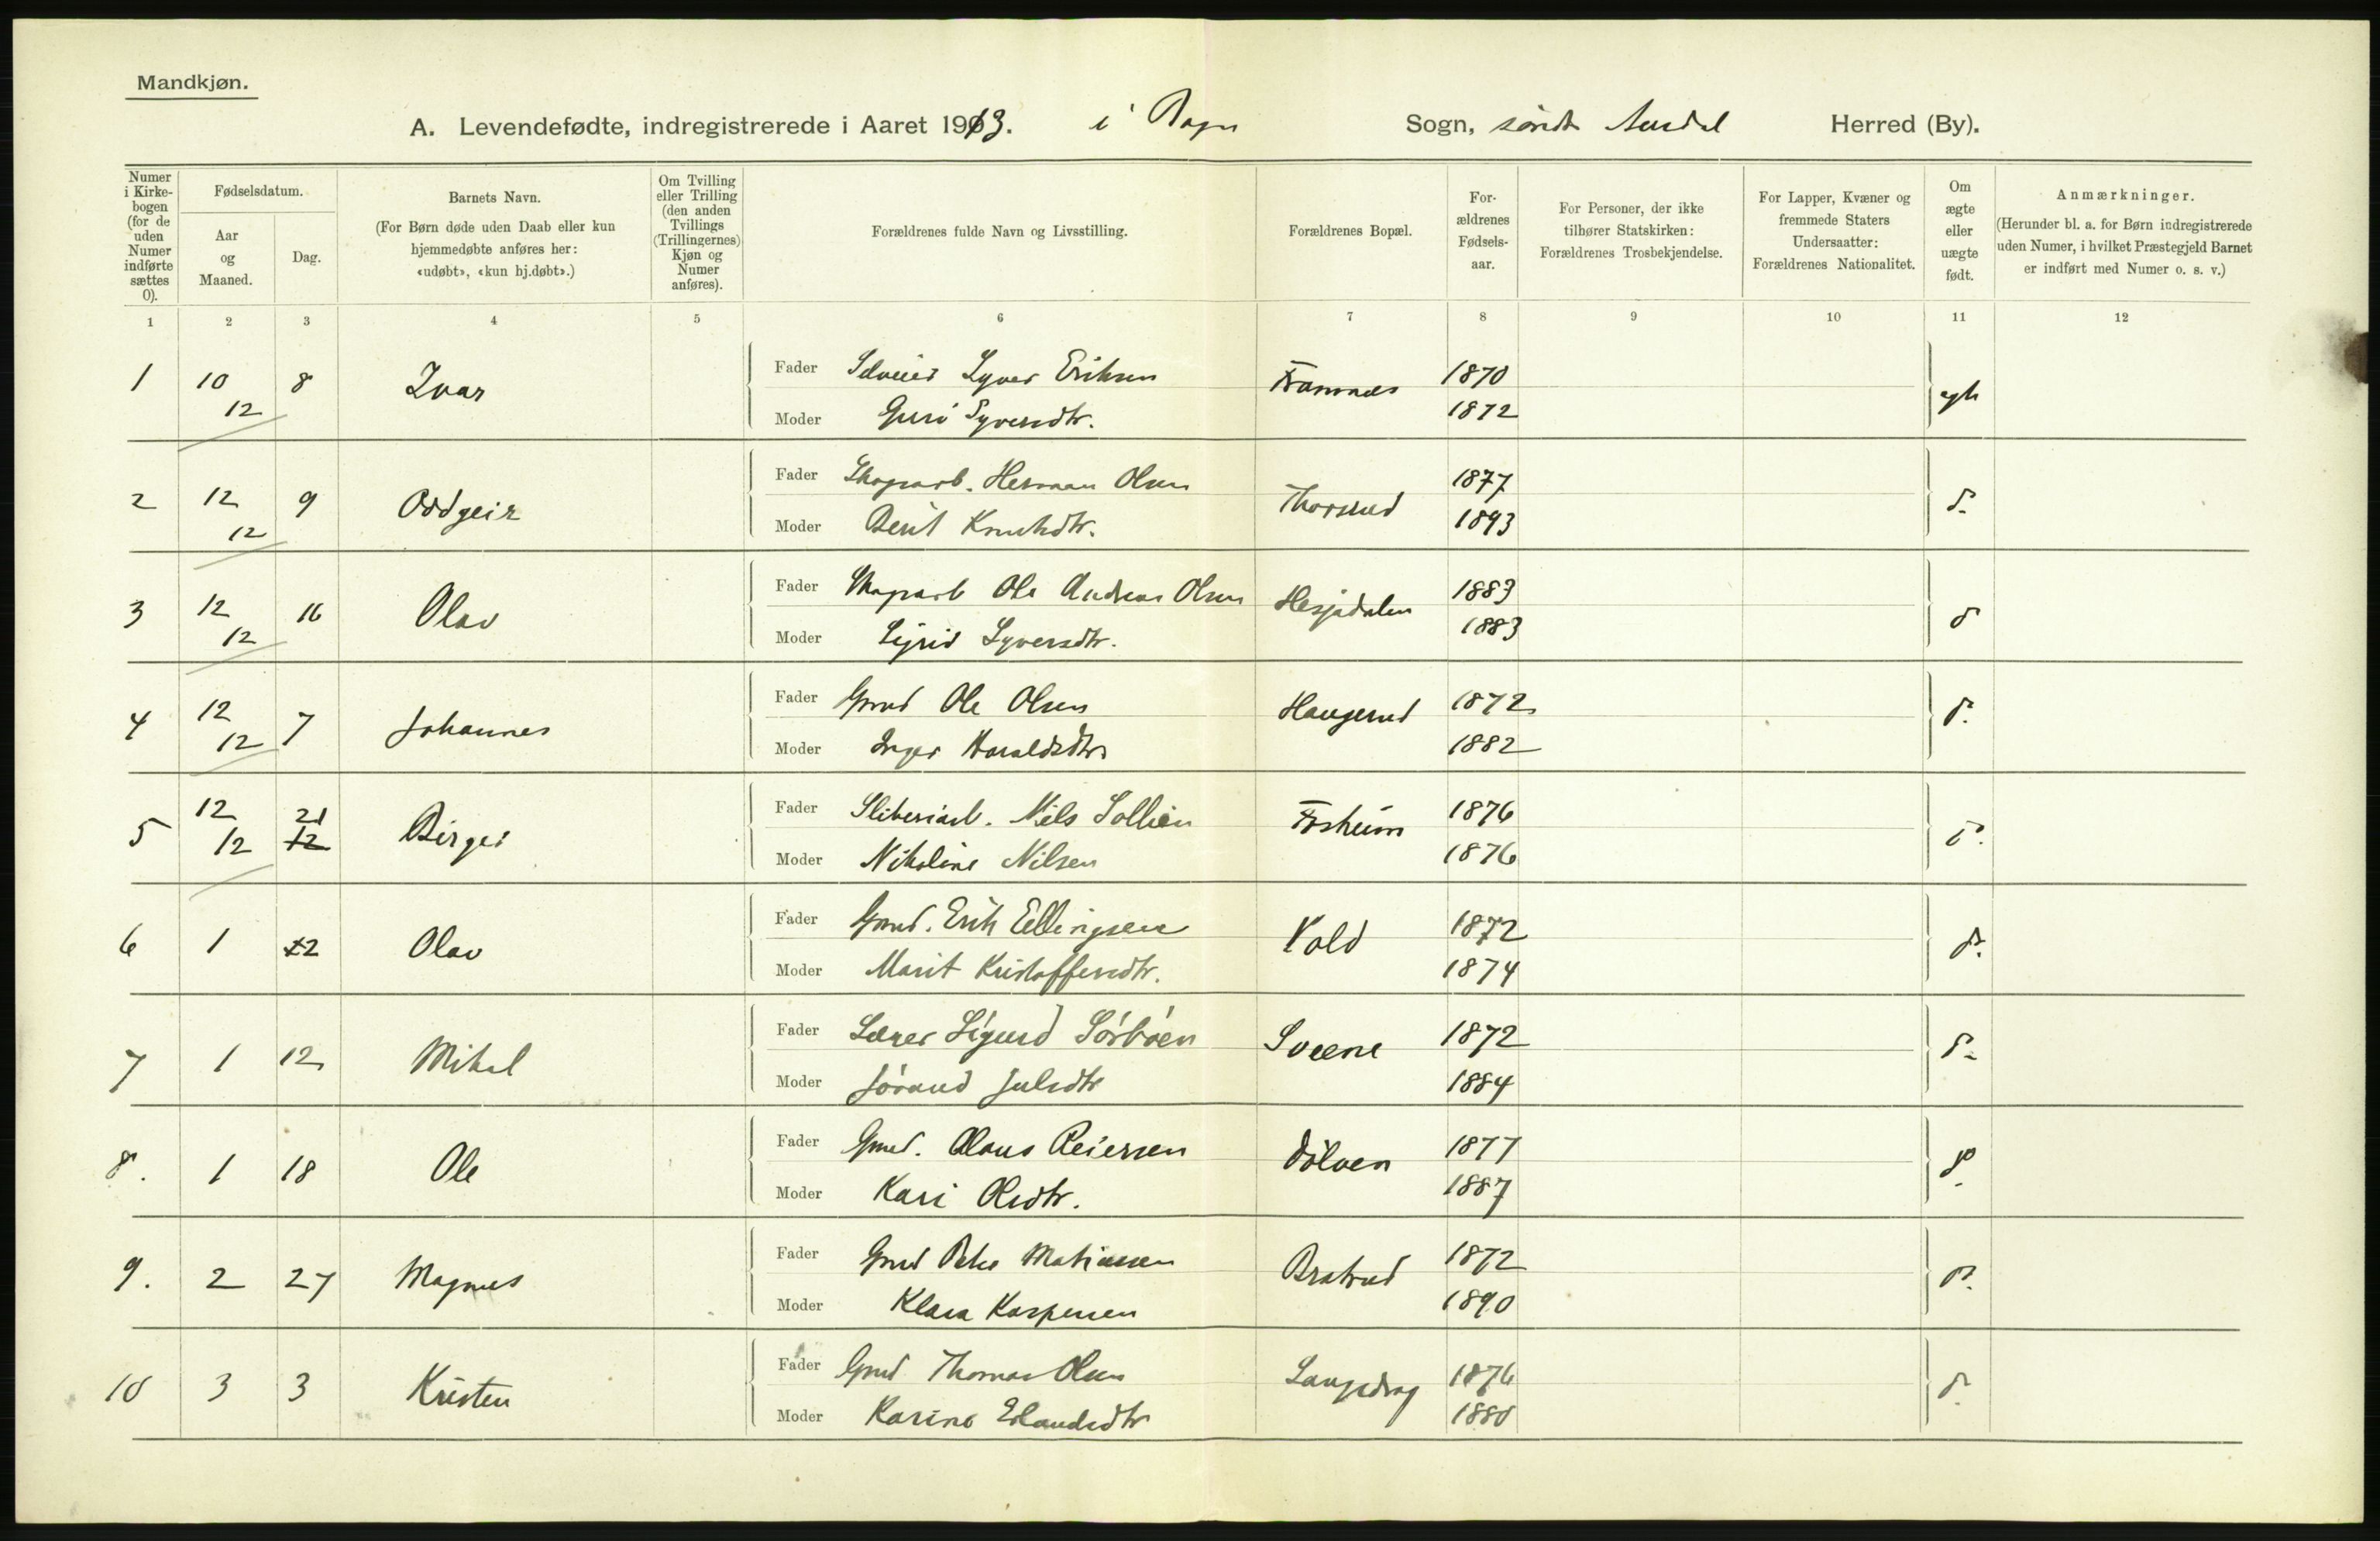 Mandkjøn.
A. Levendefødte, indregistrerede i Aaret 1913. i Bagn Sogn, søndre Aurdal Herred (By).
Numer i Kirkebogen (for de uden Numer indførte sættes 0).
Fødselsdatum.
Aar og Maaned.
Dag.
Barnets Navn.
(For Børn døde uden Daab eller kun hjemmedøbte anføres her: «udøbt», «kun hj.døbt».)
Om Tvilling eller Trilling (den anden Tvillings (Trillingernes) Kjøn og Numer anføres).
Forældrenes fulde Navn og Livsstilling.
Forældrenes Bopæl.
Forældrenes Fødselsaar.
For Personer, der ikke tilhører Statskirken: Forældrenes Trosbekjendelse.
For Lapper, Kvæner og fremmede Staters Undersaatter: Forældrenes Nationalitet.
Om ægte eller uægte født.
Anmærkninger.
(Herunder bl. a. for Børn indregistrerede uden Numer, i hvilket Præstegjeld Barnet er indført med Numer o. s. v.)
1 2 3 4 5 6 7 8 9 10 11 12
1 10 12 8 Ivar Fader Selveier Syver Eriksen Framnes 1870 egte
Moder Guri Syversdtr. 1872
2 12 12 9 Oddgeir Fader Skogsarb. Herman Olsen Thorsrud 1877 do
Moder Berit Knutsdtr. 1893
3 12 12 16 Olav Fader Skogsarb Ole Andreas Olsen Hesjadalen 1883 do
Moder Sigrid Syversdtr. 1883
4 12 12 7 Johannes Fader Grmd Ole Olsen Haugerud 1872 do.
Moder Inger Haraldsdtr 1882
5 12 12 21 12 Birger Fader Sliberiarb. Nils Sollien Fosheim 1876 do.
Moder Nikoline Nilsen 1876
6 1 22 Olav Fader Grmd. Erik Ellingsen Vold 1872 do.
Moder Marit Kristoffersdtr. 1874
7 1 12 Mikal Fader Lærer Sigurd Sørbøen Sveene 1872 do
Moder Jørand Julsdtr 1884
8. 1 18 Ole Fader Grmd. Olaus Reiersen Dølven 1877 do
Moder Kari Olsdtr. 1887
9. 2 27 Magnus Fader Grmd Peder Matiassen Bratrud 1872 do.
Moder Klara Kaspersen 1890
10 3 3 Kristen Fader Grmd Thomas Olsen Langedrag 1876 do
Moder Karine Erlandsdtr 1880